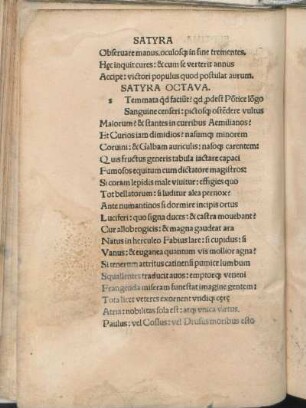 SATYRA
Obseruare manus, oculosq; in fine trementes,
Hęc inquit cures: & cum se verterit annus
Accipe: victori populus quod postulat aurum.
SATYRA OCTAVA.
s Temmata qd faciūt: qd pdest Pōtice lōgo
Sanguine censeri: pictosq; ostēdere vultus
Maiorum: & stantes in curribus Aemilianos:
Et Curios iam dimidios: nasumq; minorem
Coruini: & Galbam auriculis: nasoq; carentem:
Quis fructus generis tabula iactare capaci
Fumosos equitum cum dictatore magistros:
Si coram lepidis male viuitur: effigies quo
Tot bellatorum: si luditur alea pernox:
Ante numantinos si dormire incipis ortus
Luciferi: quo signa duces: & castra mouebant?
Cur allobrogicis: & magna gaudeat ara
Natus in herculeo Fabius lare: si cupidus: si
Vanus: & euganea quantum vis mollior agna?
Si tenerum attritus catinensi pumice lumbum
Squallentes traducit auos: emptorq; veneni
Frangenda miseram funestat imagine gentem:
Tota licet veteres exornent vndiq; cerę
Atria: nobilitas sola est: atq; vnica virtus.
Paulus: vel Cossus: vel Drusus moribus esto